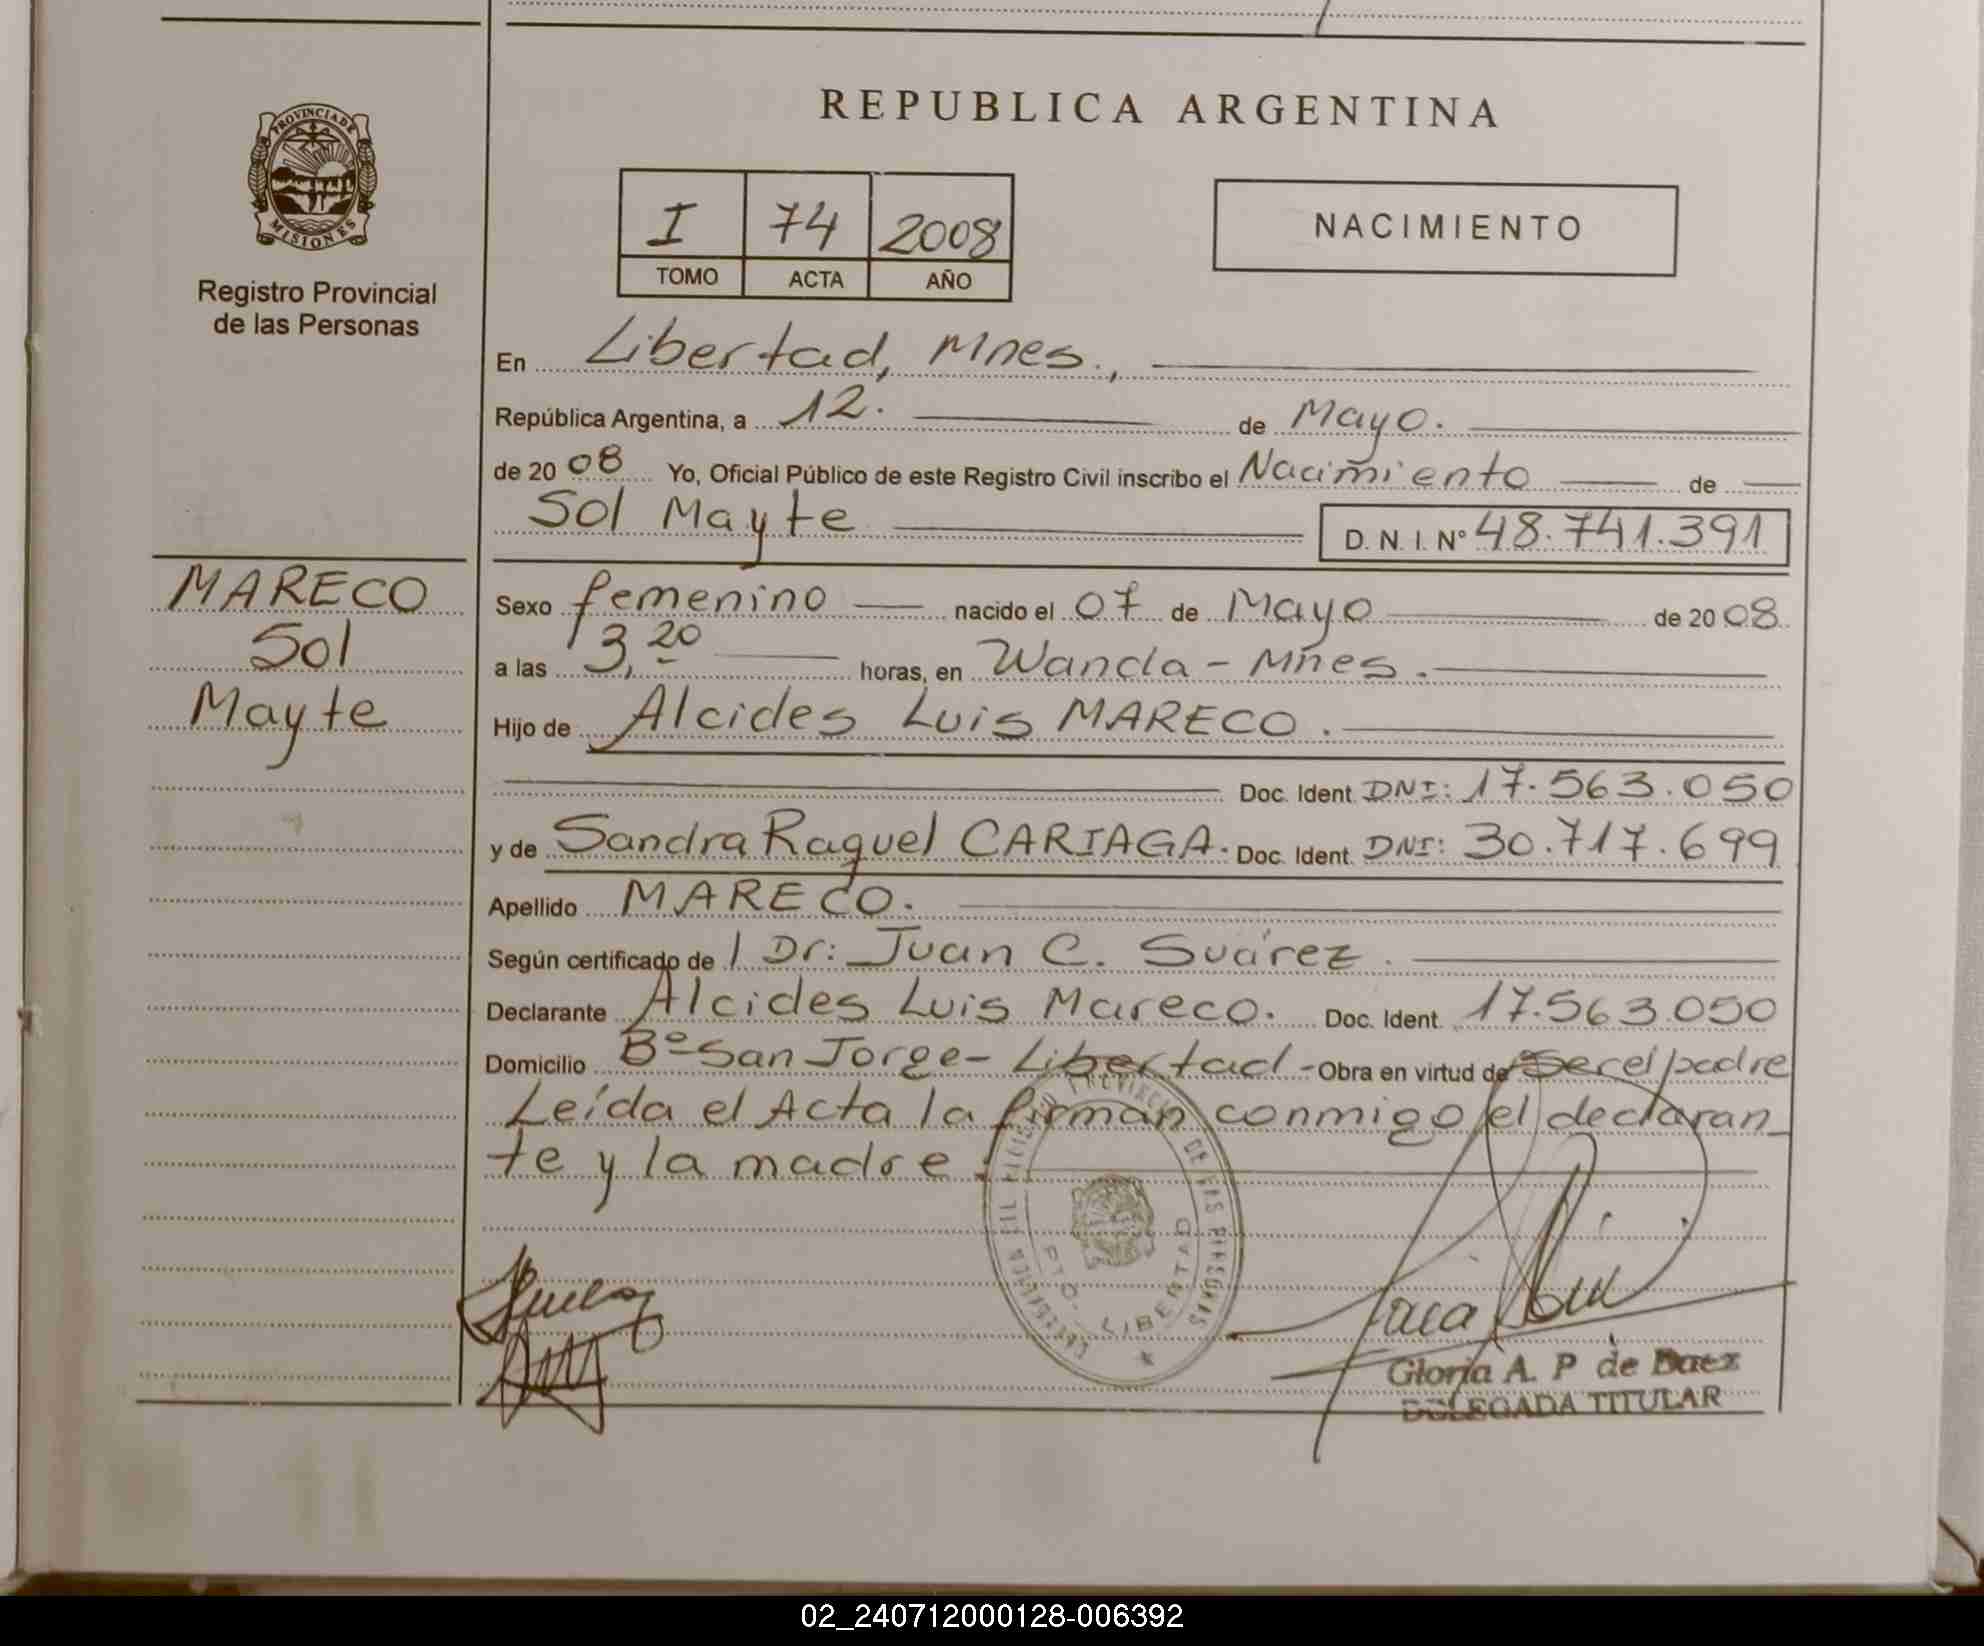 REPUBLICA ARGENTINA
PROVINCIA DE
MISIONES
Registro Provincial
de las Personas
I 74 2008
TOMO ACTA AÑO
NACIMIENTO
En Libertad, Mnes.,
República Argentina, a 12. de Mayo.
de 2008 Yo, Oficial Público de este Registro Civil inscribo el Nacimiento de
Sol Mayte D. N. I. Nº 48.741.391
MARECO
Sol
Mayte
Sexo femenino nacido el 07 de Mayo de 2008
a las 3,20 horas, en Wanda - Mnes.
Hijo de Alcides Luis MARECO.
Doc. Ident. DNI: 17.563.050
y de Sandra Raquel CARIAGA. Doc. Ident. DNI: 30.717.699
Apellido MARECO.
Según certificado de Dr: Juan C. Suárez.
Declarante Alcides Luis Mareco. Doc. Ident. 17.563.050
Domicilio Bº San Jorge - Libertad - Obra en virtud de ser el padre
Leída el Acta la firman conmigo el declaran_
te y la madre.
PTO. LIBERTAD
Gloria A. P de Baez
DELEGADA TITULAR
02_240712000128-006392